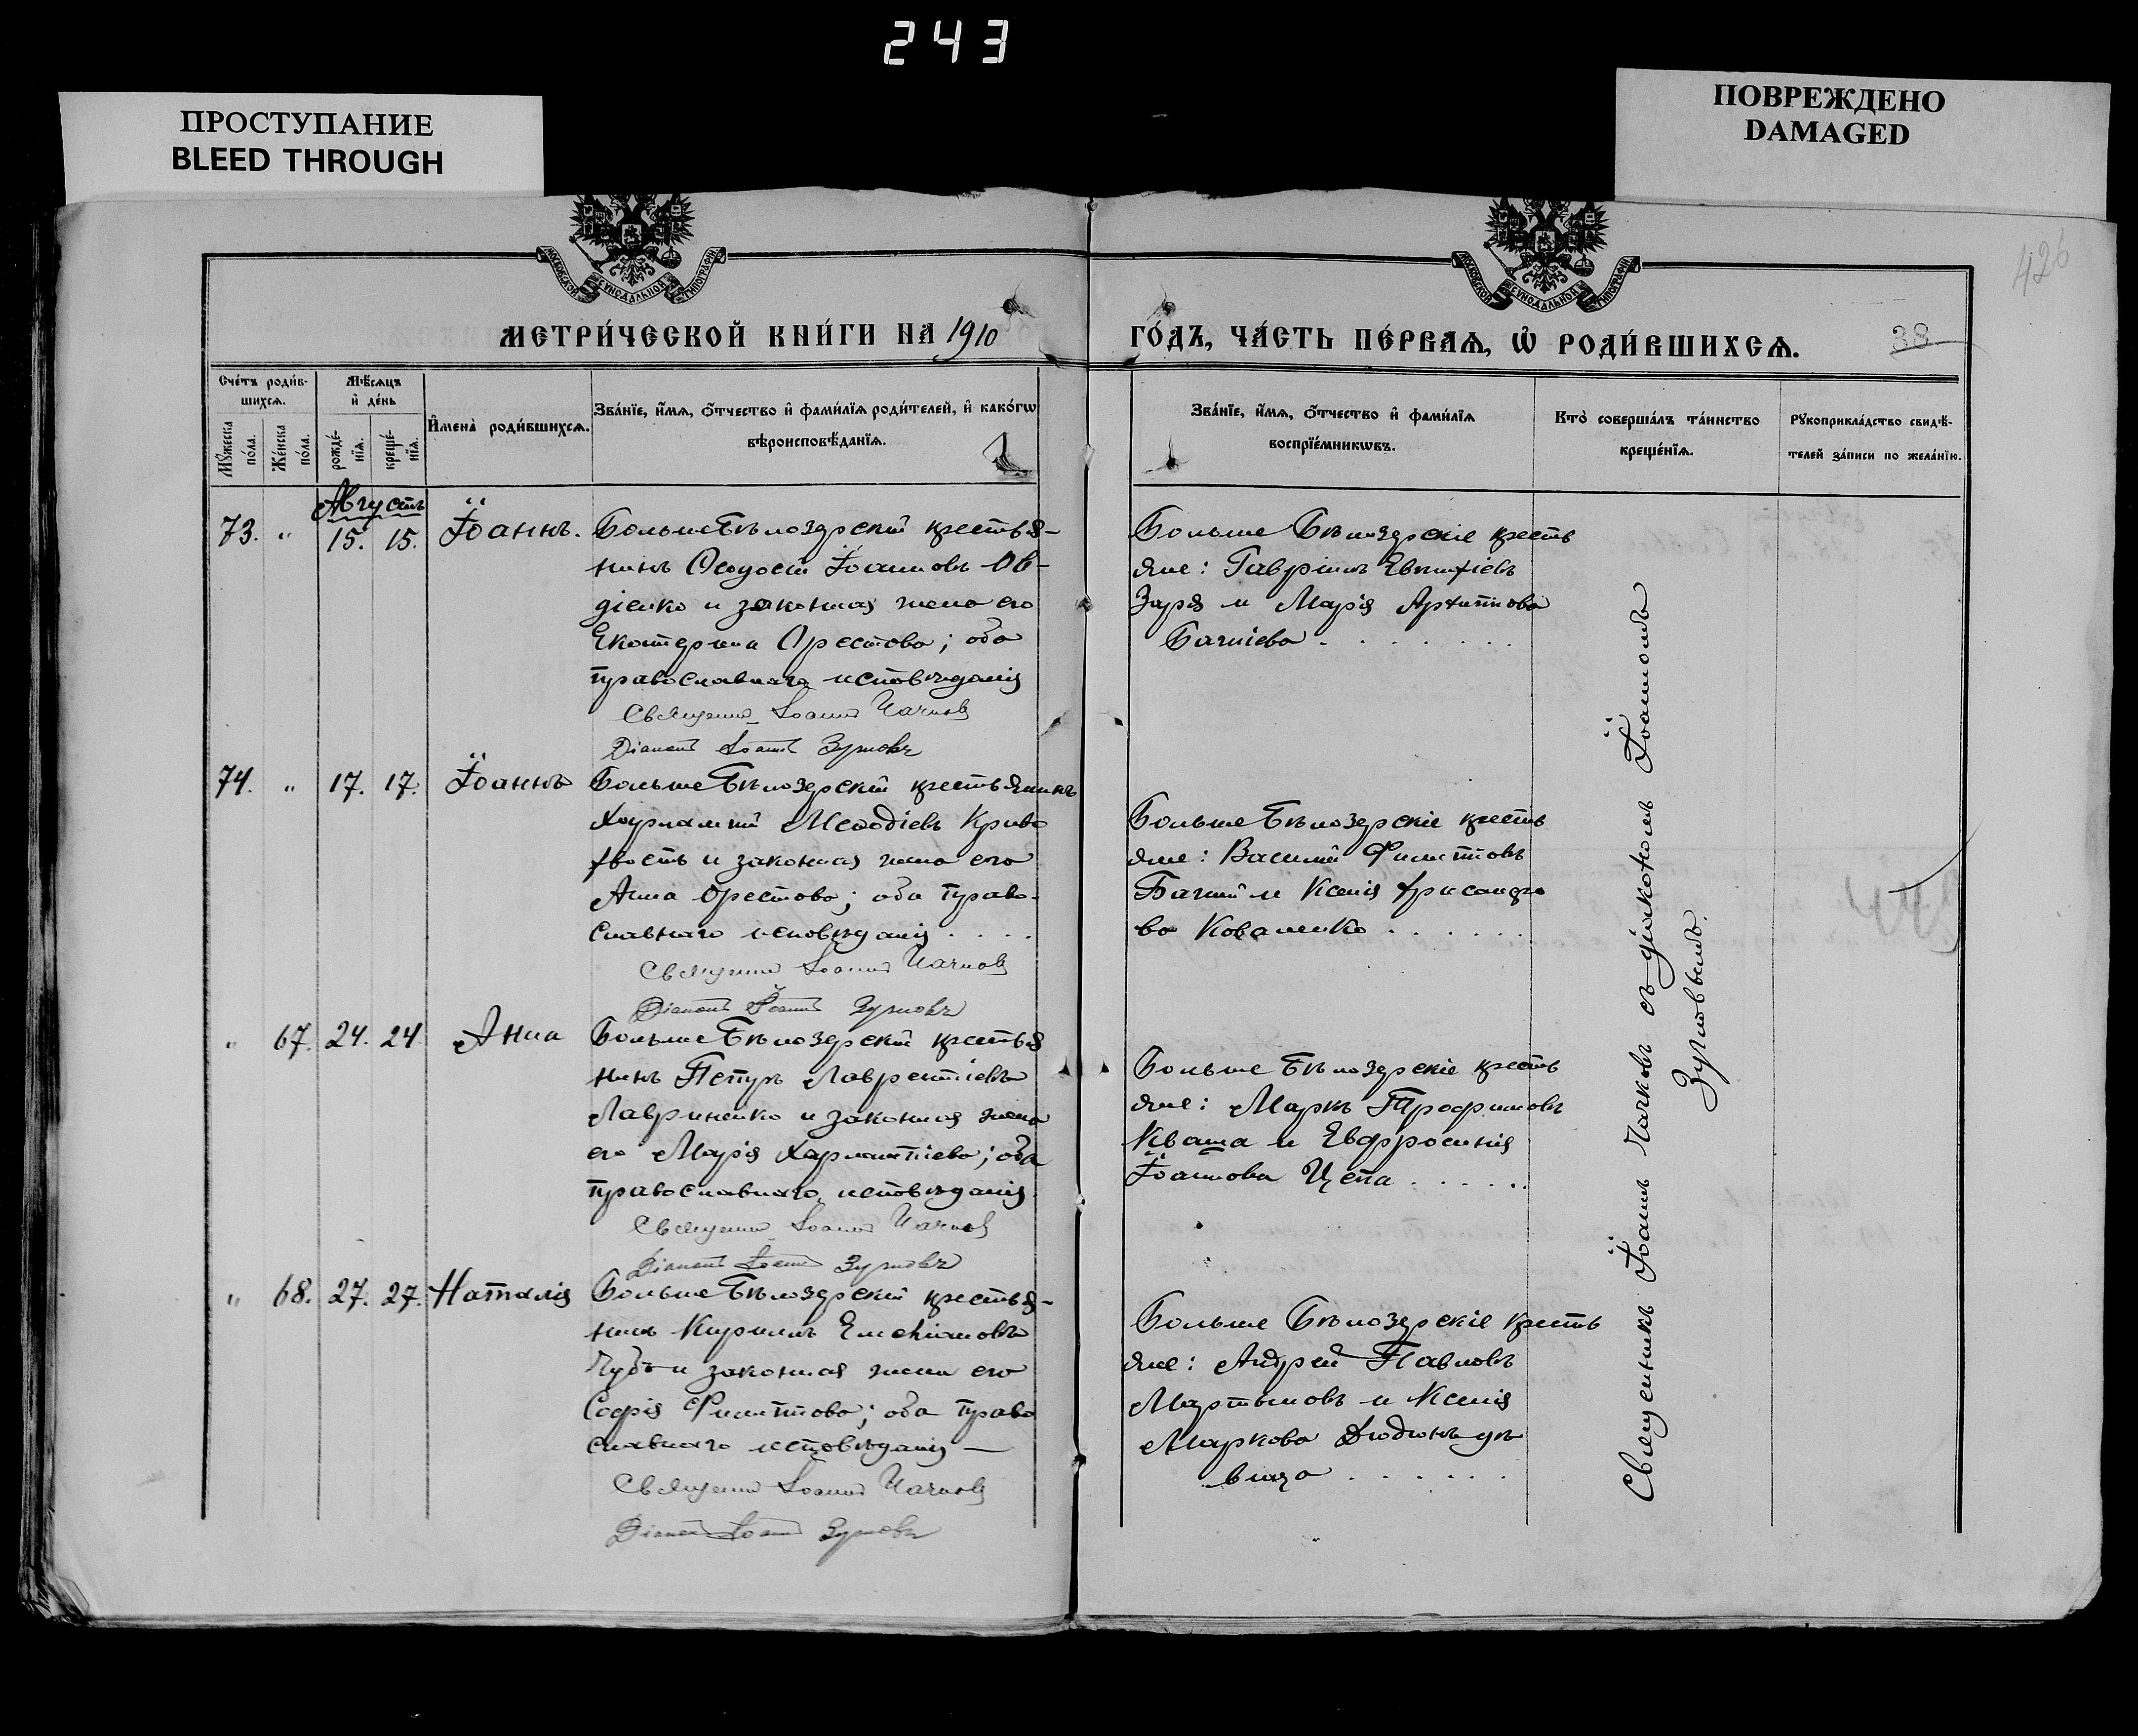 243
ПРОСТУПАНИЕ
BLEED THROUGH
ПОВРЕЖДЕНО
DAMAGED
426
МОСКОВСКОЙ СѴНОДАЛЬНОЙ ТИПОГРАФІИ
МОСКОВСКОЙ СѴНОДАЛЬНОЙ ТИПОГРАФІИ
МЕТРИ́ЧЕСКОЙ КНИ́ГИ НА 1910
ГО́ДЪ, ЧА́СТЬ ПЕ́РВАѦ, Ѡ҆ РОДИ́ВШИХСѦ.
38
Сче́тъ роди́в-
шихсѧ.
Мꙋ́жеска по́ла.
Же́нска по́ла.
Мѣ́сѧцъ
и҆ де́нь
рожде́-
нїѧ.
креще́-
нїѧ.
И҆мена̀ роди́вшихсѧ.
Зва́нїе, и҆́мѧ, ѻ҆́тчество и҆ фами́лїѧ роди́телей, и҆ како́гѡ
вѣроисповѣ́данїѧ.
Зва́нїе, и҆́мѧ, ѻ҆́тчество и҆ фами́лїѧ
воспрїе́мникѡвъ.
Кто̀ соверша́лъ та́инство
креще́нїѧ.
Рꙋкоприкла́дство свидѣ́-
телей за́писи по жела́нїю.
Августъ
73. " 15. 15. Іоаннъ.
БольшеБѣлозерскій крестья-
нинъ Ѳеодосій Іоанновъ Ов-
діенко и законная жена его
Екатерина Орестова; оба
православнаго исповѣданія
Священник Іоаннъ Чачковъ
Діаконъ Іоаннъ
Больше Бѣлозерскіе кресть
яне: Гавріилъ Евѳиміевъ
Заря и Марія Архиппова
Багніева
74. " 17. 17. Іоаннъ
БольшеБѣлозерскій крестьянинъ
Харлампій Меѳодіевъ Криво
хвостъ и законная жена его
Анна Орестова; оба право-
славнаго исповѣданія
Священник Іоаннъ Чачковъ
Діаконъ Іоаннъ
Больше Бѣлозерскіе кресть
яне: Василій Филипповъ
Багній и Ксенія Хрисанфо
ва Коваленко
" 67. 24. 24. Анна
БольшеБѣлозерскій крестья
нинъ Петръ Лаврентіевъ
Лавриненко и законная жена
его Марія Харлампіева; оба
православнаго исповѣданія.
Священник Іоаннъ Чачковъ
Діаконъ Іоаннъ
Больше Бѣлозерскіе кресть
яне: Маркъ Трофимовъ
Кваша и Евфросинія
Іоаннова Цепа
" 68. 27. 27. Наталія
БольшеБѣлозерскій крестья-
нинъ Кириллъ Емеліановъ
Чубъ и законная жена его
Софія Филиппова; оба право
славнаго исповѣданія —
Священник Іоаннъ Чачковъ
Діаконъ Іоаннъ
Больше Бѣлозерскіе кресть
яне: Андрей Павловъ
Мартыновъ и Ксенія
Маркова дѣ
вица
Священникъ Іоаннъ Чачковъ съ діакономъ Іоанномъ